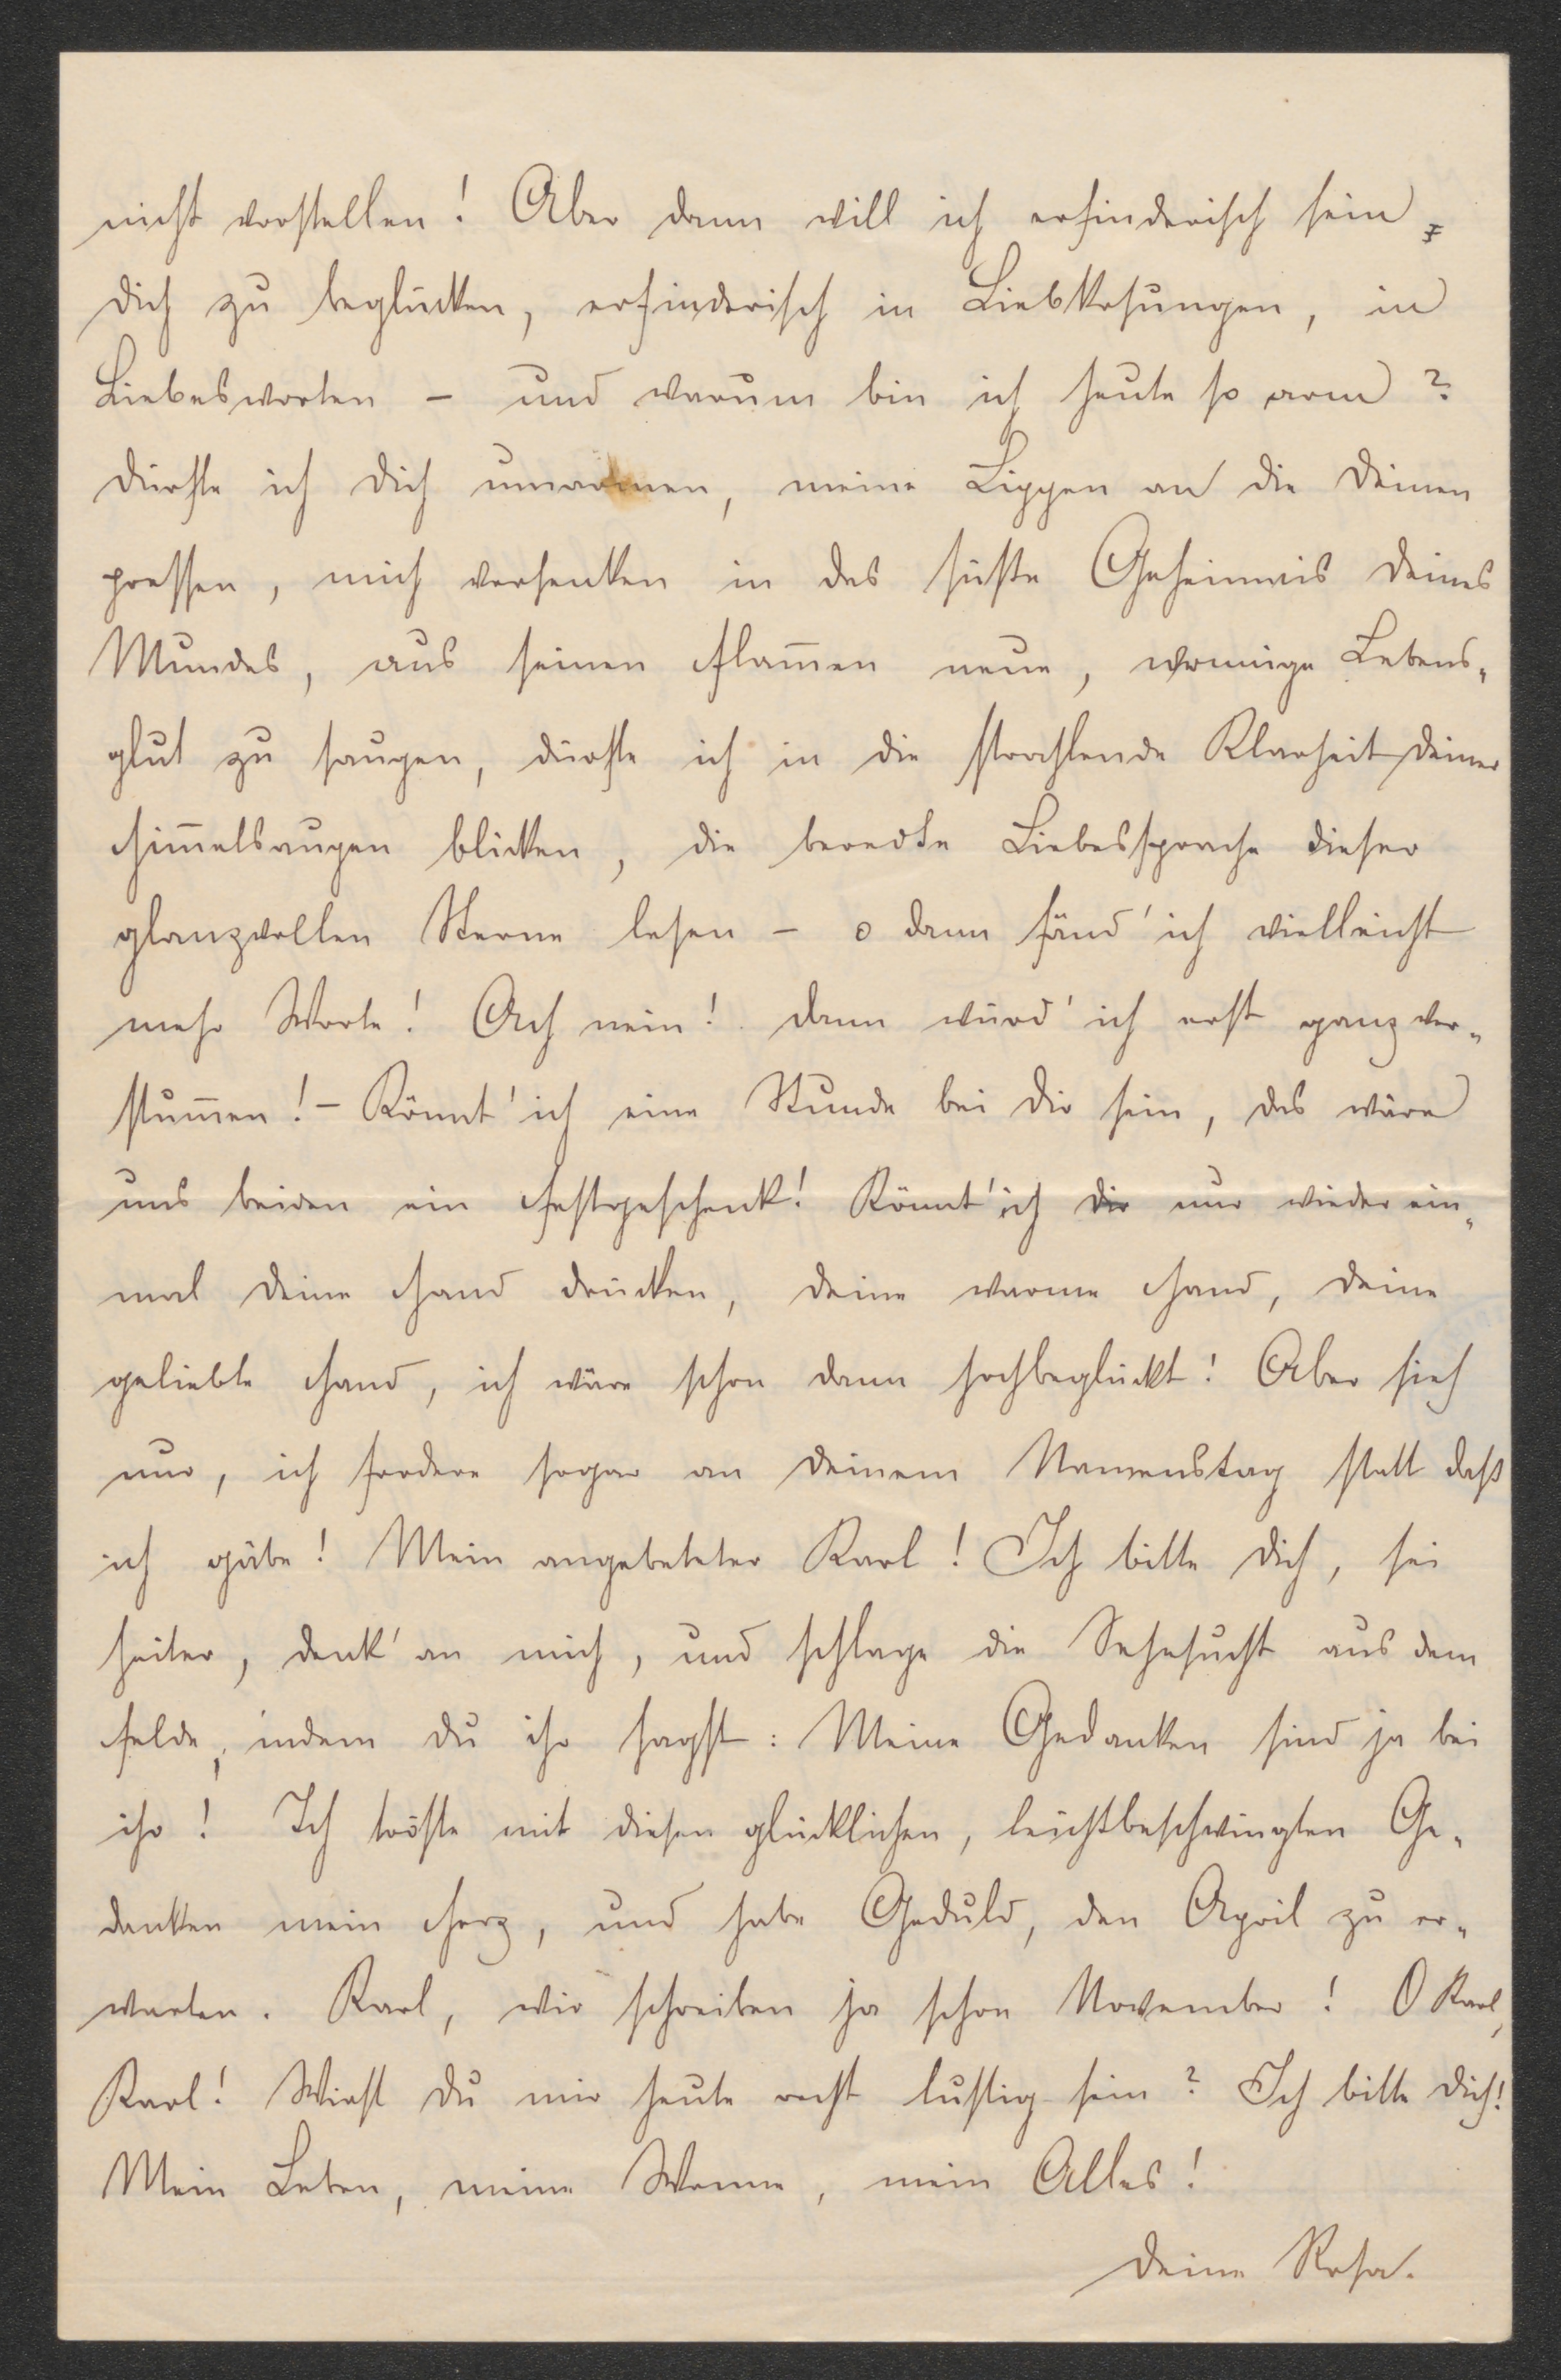 nicht vorstellen! Aber dann will ich erfinderisch sein,
dich zu beglücken, erfinderisch in Liebkosungen, in
Liebesworten – und warum bin ich heute so arm?
Dürfte ich dich umarmen, meine Lippen an die deinen
pressen, mich versenken in das süße Geheimnis deines
Mundes, aus seinen Flam̅en neue, wonnige Lebens-
glut zu saugen, dürfte ich in die strahlende Klarheit deiner
Him̅elsaugen blicken, die beredte Liebessprache dieser
glanzvollen Sterne lesen – o dann fänd' ich vielleicht
mehr Worte! Ach nein! dann würd' ich erst ganz ver-
stum̅en! – Könnt' ich eine Stunde bei dir sein, das wäre
uns beiden ein Festgeschenk! Könnt' ich dir nur wieder ein-
mal deine Hand drücken, deine warme Hand, deine
geliebte Hand, ich wäre schon dann hochbeglückt! Aber sieh
nur, ich fordere sogar an deinem Namenstag statt daß
ich gäbe! Mein angebeteter Karl! Ich bitte dich, sei
heiter, denk' an mich, und schlage die Sehnsucht aus dem
Felde, indem du ihr sagst: Meine Gedanken sind ja bei
ihr! Ich tröste mit diesen glücklichen, leichtbeschwingten Ge-
danken mein Herz, und habe Geduld, den April zu er-
warten. Karl, wir schreiben ja schon November! O Karl,
Karl! Wirst du mir heute recht lustig sein? Ich bitte dich!
Mein Leben, meine Wonne, mein Alles!
Deine Rosa.